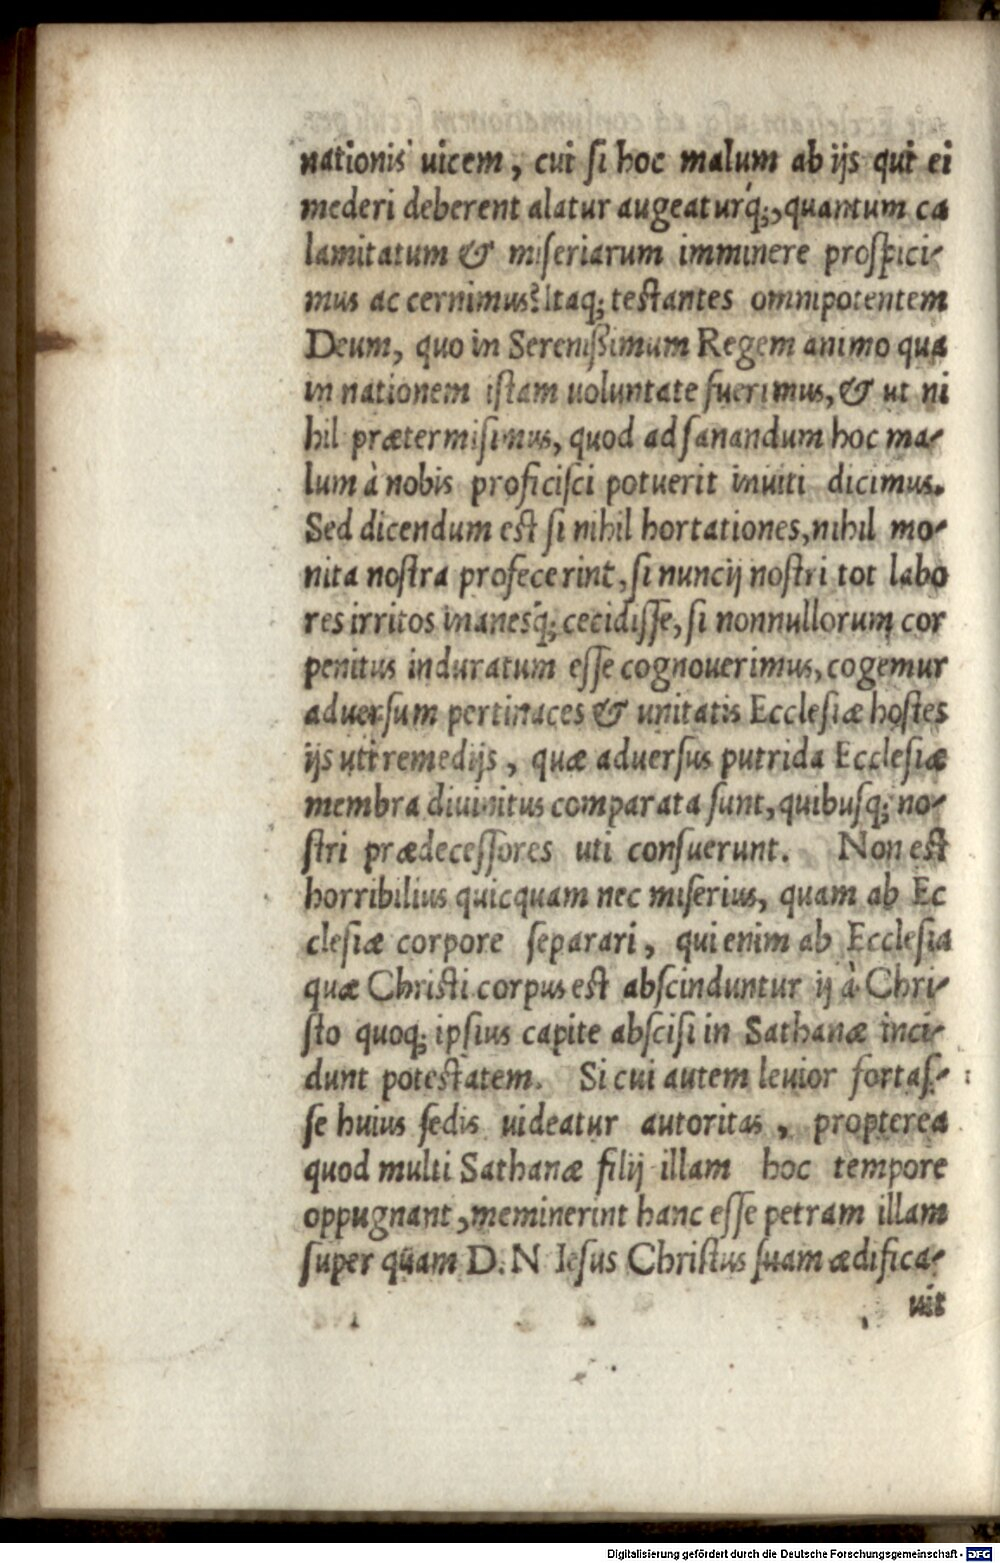 nationis uicem, cui ſi hoc malum ab ijs qui ei
mederi deberent alatur augeaturq́;, quantum ca
lamitatum & miſeriarum imminere proſpici-
mus ac cernimus? Itaq; teſtantes omnipotentem
Deum, quo in Sereniſsimum Regem animo qua
in nationem iſtam uoluntate fuerimus, & ut ni
hil prætermiſimus, quod ad ſanandum hoc ma-
lum à nobis proficiſci potuerit inuiti dicimus.
Sed dicendum eſt ſi nihil hortationes, nihil mo-
nita noſtra profecerint, ſi nuncij noſtri tot labo
res irritos inanesq́; cecidiſſe, ſi nonnullorum cor
penitus induratum eſſe cognouerimus, cogemur
aduerſum pertinaces & unitatis Eccleſiæ hoſtes
ijs uti remedijs, quæ aduerſus putrida Eccleſiæ
membra diuinitus comparata ſunt, quibuſq; no-
ſtri prædeceſſores uti conſuerunt. Non eſt
horribilius quicquam nec miſerius, quam ab Ec
cleſiæ corpore ſeparari, qui enim ab Eccleſia
quæ Chriſti corpus eſt abſcinduntur ij à Chri-
ſto quoq; ipſius capite abſciſi in Sathanæ inci-
dunt poteſtatem. Si cui autem leuior fortaſ-
ſe huius ſedis uideatur autoritas, propterea
quod multi Sathanæ filij illam hoc tempore
oppugnant, meminerint hanc eſſe petram illam
ſuper quam D. N Ieſus Chriſtus ſuam ædifica-
uit
Digitalisierung gefördert durch die Deutsche Forschungsgemeinschaft - DFG